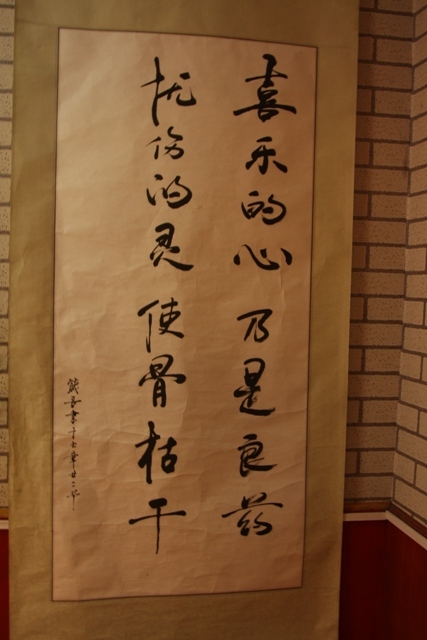 喜乐的心乃是良药
忧伤的灵使骨枯干